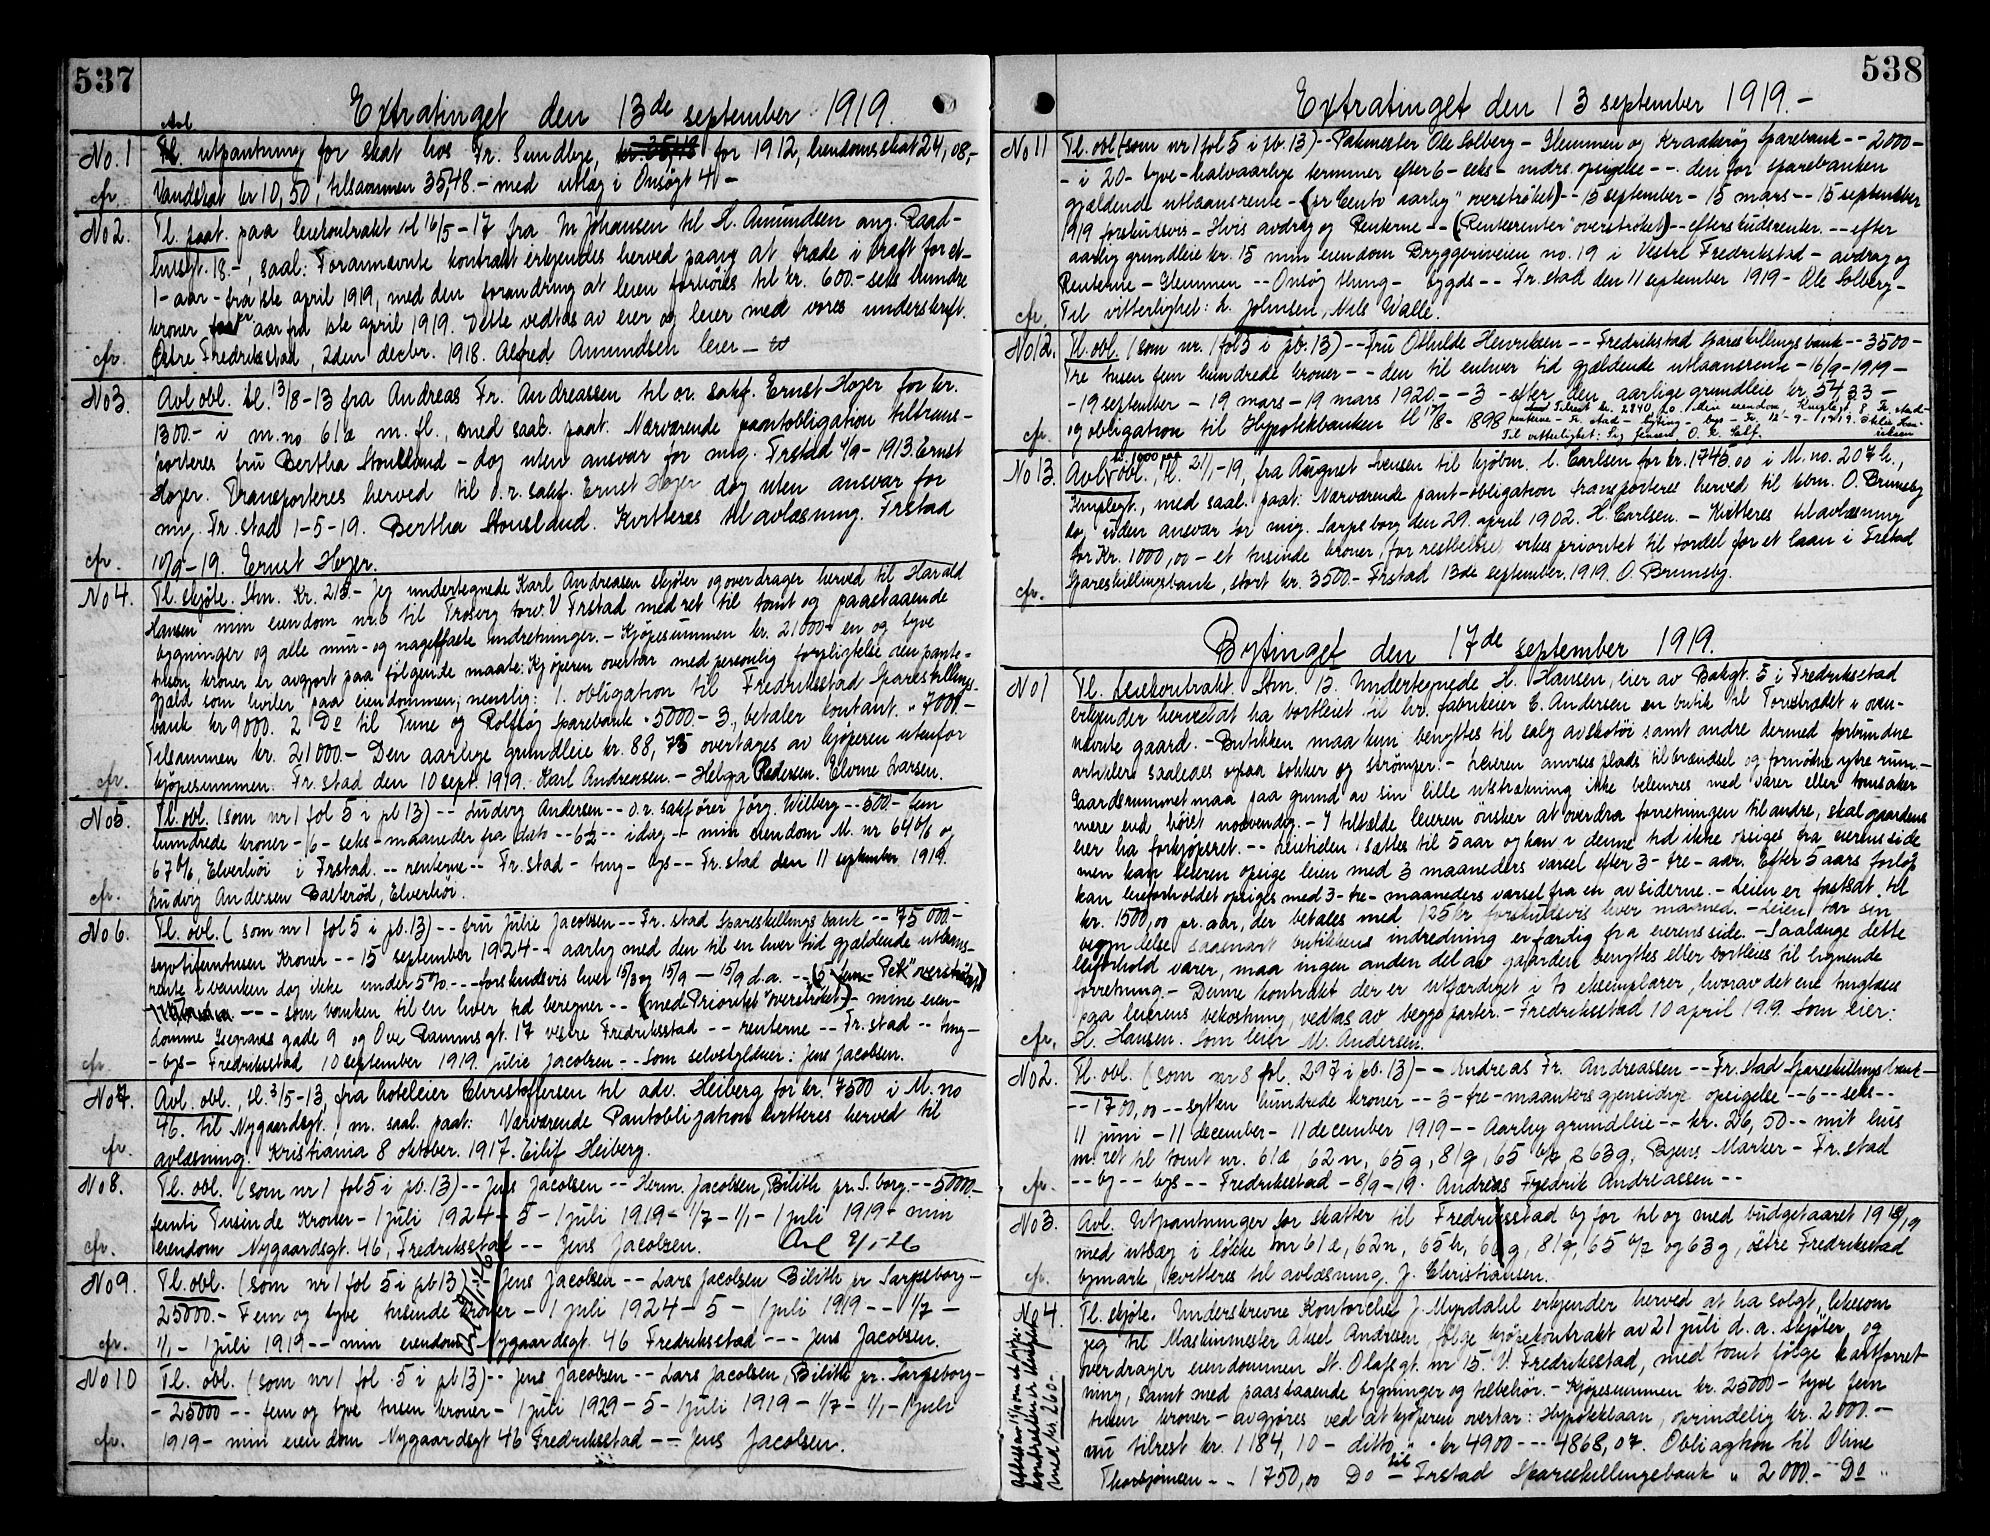 537
Extratinget den 13de september 1919.
No. 1 Avl. utpantning for skat hos Fr. Sundbye, for 1912, eiendomsskat 24,98,-
Vandskat kr 10,50, tilsammen 35,48.- med utlæg i Onsøgt 4 -
cfr.
No 2. Tl. paat. paa leiekontrakt tl 16/5-17 fra M Johansen til H. Amundsen ang. Raad-
husgt. 18-, saal: Forannævnte kontrakt erkjendes herved paany at træde i kraft for et-
1- aar - fra 1ste april 1919, med den forandring at leien forhøies til kr. 600.- seks hundre
kroner pr aar fra 1ste april 1919. Dette vedtas av eier og leier med vores underskrift.
cfr. Østre Fredrikstad, 2den decbr. 1918. Alfred Amundsen leier -
No 3. Avl obl. tl. 13/8-13 fra Andreas Fr. Andreassen til o.r. sakf. Ernst Høzer for kr.
1300.- i m.no. 61æ m. fl., med saal. paat. Nærværende pantobligation tiltrans-
porteres fru Bertha Stousland - dog uten ansvar for mig. Frstad 4/9-1913. Ernst
Høzer. Transporteres herved til o.r. sakf. Ernst Høzer dog uten ansvar for
mig. Fr.stad 1-5-19. Bertha Stousland. Kvitteres til avlæsning. Frstad
cfr. 10/9-19. Ernst Høzer.
No 4. Tl. skjøte. Stm. Kr. 215- Jeg undertegnede Karl Andreasen skjøter og overdrager herved til Harald
Hansen min eiendom nr. 6 til Trosvig torv. V Frstad med ret til tomt og paastaaende
bygninger og alle mur- og nagelfaste indretninger. - Kjøpesummen kr. 21000- en og tyve
tusen kroner er avgjort paa følgende maate: Kjøperen overtar med personlig forpligtelse den pante-
gjæld som hviler paa eiendommen, nemlig: 1. obligation til Fredriksstad Spareskillings-
bank kr 9000. 2 Do til Tune og Rolfsøy Sparebank " 5000.- 3., betaler kontant. " 7000-
Tilsammen kr. 21000.- Den aarlige grundleie kr. 88,75 overtages av kjøperen utenfor
cfr. kjøpesummen. Fr.stad den 10 sept. 1919. Karl Andreasen. - Helga Pedersen. Elvine Larsen.
No 5. Tl. obl. (som nr 1 fol 5 i pb 13) -- Ludvig Andersen -- o.r. sakfører Jørg. Wilberg -- 500.- fem
hundrede kroner - 6 - seks - maaneder fra dato -- 6½ -- idag -- min eiendom M. nr 64 b/6 og
67 b/6, Elverhöi i Frstad. -- renterne -- Fr.stad - ting - bys -- Fr.stad den 11 september 1919.
cfr. Ludvig Andersen Bakkerød, Elverhöi.
No 6. Tl. obl. ( som nr 1 fol 5 i pb. 13) -- fru Julie Jacobsen -- Fr.stad Spareskillings bank -- 75000.-
syvtifemtusen Kroner -- 15 september 1924 -- aarlig med den til en hver tid gjældende utlaans-
rente i banken dog ikke under 5% --- forskudsvis hver 15/3 og 15/9 - 15/9 d.a. --
--- som banken til en hver tid beregner -- (med Prioritet "overstrøket) - mine eien-
domme Isegrans gade 9 og Ove Rammsgt. 17 vestre Fredriksstad -- renterne -- Fr.stad -- ting-
cfr. - bys - Fredriksstad 10 september 1919. Julie Jacobsen -- Som selvskyldner: Jens Jacobsen.
No 7. Avl. obl., tl. 3/5-13, fra hoteleier Christoffersen til adv. Heiberg for kr. 7500 i M. no
46. til Nygaardsgt., m. saal. paat: Nærværende Pantobligation kvitteres herved til
cfr. avlæsning. Kristiania 8 oktober. 1917. Eilif Heiberg.
No 8. Tl. obl. (som nr 1 fol 5 i pb. 13) -- Jens Jacobsen -- Herm. Jacobsen, Bilith pr. S.borg. -- 5000-
femti Tusinde Kroner - 1 juli 1924 - 5 - 1 juli 1919 - 1/7 - 1/1 - 1 juli 1919 - min
cfr. eiendom Nygaardsgt. 46, Fredriksstad -- Jens Jacobsen. Avl 8/1-26
No 9. Tl. obl. (som nr 1 fol 5 i pb 13) Jens Jacobsen -- Lars Jacobsen Bilith pr Sarpsborg -
25000.- Fem og tyve tusinde kroner - 1 juli 1924 - 5 - 1 juli 1919 -- 1/7 -
cfr. 1/1 - 1 juli 1919 -- min eiendom Nygaardsgt. 46 Fredriksstad --- Jens Jacobsen.
No 10 Tl. obl. (som nr 1 fol. 5 i pb 13) -- Jens Jacobsen -- Lars Jacobsen, Bilith pr. Sarpsborg -
- 25000 -- fem og tyve tusen kroner - 1 juli 1929 - 5 - 1 juli 1919 - 1/7 - 1/1 - 1 juli
cfr. 1919 - min eiendom Nygaardsgt 46 Fredriksstad --- Jens Jacobsen.
538
Extratinget den 13 september 1919.-
No 11 Tl. obl. (som nr 1 fol 5 i pb. 13) -- Pakmester Ole Solberg - Glemmen og Kraakerøy Sparebank -- 2000-
- i 20 - tyve - halvaarlige terminer efter 6 - seks - mdrs. opsigelse -- den for sparebanken
gjældende utlaansrente - (pr Cento aarlig" overstrøket) - 15 september - 15 mars -- 15 september
1919 forskudsvis - Hvis avdrag og Renterne -- (Rentersrenter" overstrøket) -- efterskudsrenter. -- efter
aarlig grundleie kr. 15 min eiendom Bryggeriveien no. 19 i Vestre Fredrikstad - avdrag og
Renterne - Glemmen -- Onsøy thing - bygds -- Fr.stad den 11 september 1919 - Ole Solberg -
cfr. Til vitterlighet: L. Johnsen, Nils Walle.
No 12. Tl. obl. (som nr. 1 fol 5 i pb. 13) -- fru Othilde Henriksen -- Fredrikstad Spareskillingsbank -- 3500-
Tre tusen fem hundrede kroner -- den til enhver tid gjældende utlaansrente - 16/9-1919 -
- 19 september - 19 mars - 19 mars 1920. -- 3 - efter den aarlige grundleie kr. 54,33 -
cfr. og obligation til Hypotekbanken tl 17/8- 1898
Til vitterlighet: Sig Jensen O. K. Elf.
No 13. Avl obl., tl. 21/1-19, fra August Svensen til kjøbm. C. Carlsen for kr. 1745.00 i M. no. 207 b.,
Kirplegt., med saal. paat: Nærværende pant-obligation transporteres herved til kbm. O. Brumsby
dog uden ansvar for mig. Sarpsborg den 29. april 1902. H. Carlsen. - Kvitteres til avlæsning
for Kr. 1000,00 - et tusinde kroner, for restbeløbet vikes prioritet til fordel for et laan i Frstad
cfr. Spareskillingsbank, stort kr. 3500.- Frstad 13de september. 1919. O. Brumsby.
Bytinget den 17de september 1919.
No 1 Tl. Leiekontrakt. Stm. 12. Undertegnede H. Hansen, eier av Bakgt. 5 i Fredriksstad
erkjender herved at ha bortleiet til hr. fabrikeier C. Andersen en butik til Torvstrædet i oven-
nævnte gaard. - Butikken maa kun benyttes til salg av skotøi samt andre dermed forbundne
artikler saaledes ogsaa sokker og strømper. - Leieren anvises plads til brændsel og fornødne ytre rum. -
Gaardsrummet maa paa grund av sin lille utstrækning ikke belemres med varer eller tomsaker
mere end høist nødvendig. - I tilfælde leieren ønsker at overdra forretningen til andre, skal gaardens
eier ha forkjøpsret. -- Leietiden sættes til 5 aar og kan i denne tid ikke opsiges fra eierens side
men kan leieren opsige leien med 3 maaneders varsel efter 3 - tre - aar. Efter 5 aars forløp
kan leieforholdet opsiges med 3 - tre - maaneders varsel fra en av siderne. - Leien er fastsat til
kr. 1500,00 pr. aar, der betales med 125 kr forskudsvis hver maaned. - Leien tar sin
begyndelse saasnart butikkens indredning er færdig fra eierens side. - Saalænge dette
leieforhold varer, maa ingen anden del av gaarden benyttes eller bortleies til lignende
forretning. - Denne kontrakt der er utfærdiget i to eksemplarer, hvorav det ene tinglæses
paa leierens bekostning, vedtas av begge parter. - Fredriksstad 10 april 1919. Som eier:
cfr. H. Hansen. Som leier M. Andersen.
No 2. Tl. obl. (som nr 8 fol. 297 i pb. 13) -- Andreas Fr. Andreassen -- Fr.stad Spareskillingsbank -
-- 1700,00 -- sytten hundrede kroner -- 3 - tre - maaneders gjensidig opsigelse -- 6 -- seks --
11 juni - 11 december - 11 december 1919 -- Aarlig grundleie -- kr. 26,50 -- mit hus
m. ret til tomt nr. 61æ, 62n, 65g, 81g, 65 b/2 & 63g, Byens Marker - Fr.stad
cfr. -- by -- bys -- Fredriksstad - 8/9-19. Andreas Fredrik Andreassen --
No 3. Avl. Utpantninger for skatter til Fredriksstad by for til og med budgetaaret 1918/19
med utlæg i løkke nr 61æ, 62n, 65h, 66g, 81g, 65 b/2 og 63g, østre Fredriksstad
cfr. bymark, kvitteres til avlæsning. J. Christiansen.
No 4. Tl. skjøte. Underskrevne Kontorchef J. Myrdahl erkjender herved at ha solgt, likesom
jeg til Maskinmester Aksel Andresen, følge kjøpekontrakt av 21 juli d.a. skjøter og
overdrager eiendommen St. Olafsgt. nr 15. V. Fredriksstad, med tomt følge kartforret-
ning, samt med paastaaende bygninger og tilbehør. - Kjøpesummen kr. 25000- tyve fem
tusen kroner - avgjøres ved at kjøperen overtar: Hypoteklaan, oprindelig kr. 2000.-
nu tilrest kr. 1184,10 - ditto " kr 4900 --- 4868,07. Obligation til Oline
Thorbjørnsen -- 1750,00 Do til Frstad Spareskillingsbank " 2000.- Do "